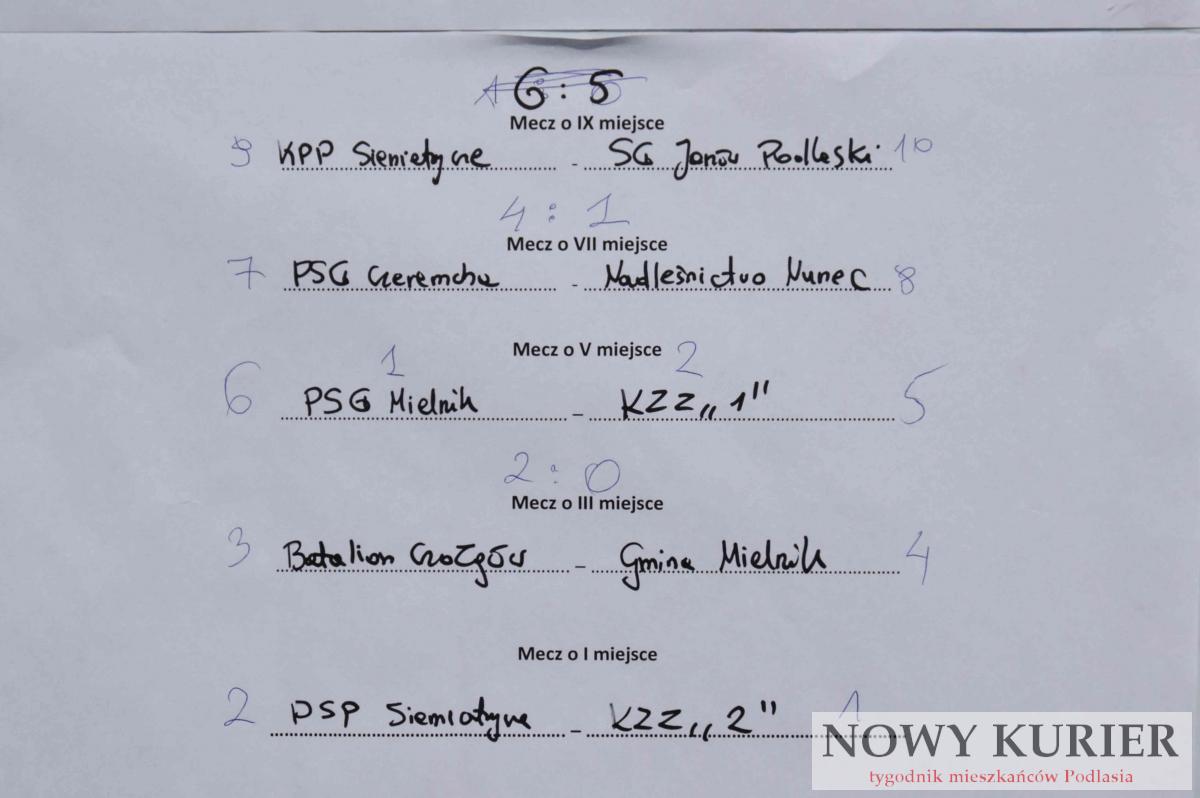 6 : 5
Mecz o IX miejsce
9 KPP Siemiatycze - SG Janów Podlaski 10
4 : 1
Mecz o VII miejsce
7 PSG Czeremcha - Nadleśnictwo Nurzec 8
Mecz o V miejsce
1 2
6 PSG Mielnik - KZZ „1" 5
2 : 0
Mecz o III miejsce
3 Batalion Czołgów - Gmina Mielnik 4
Mecz o I miejsce
2 PSP Siemiatycze - KZZ „2" 1
NOWY KURIER
tygodnik mieszkańców Podlasia